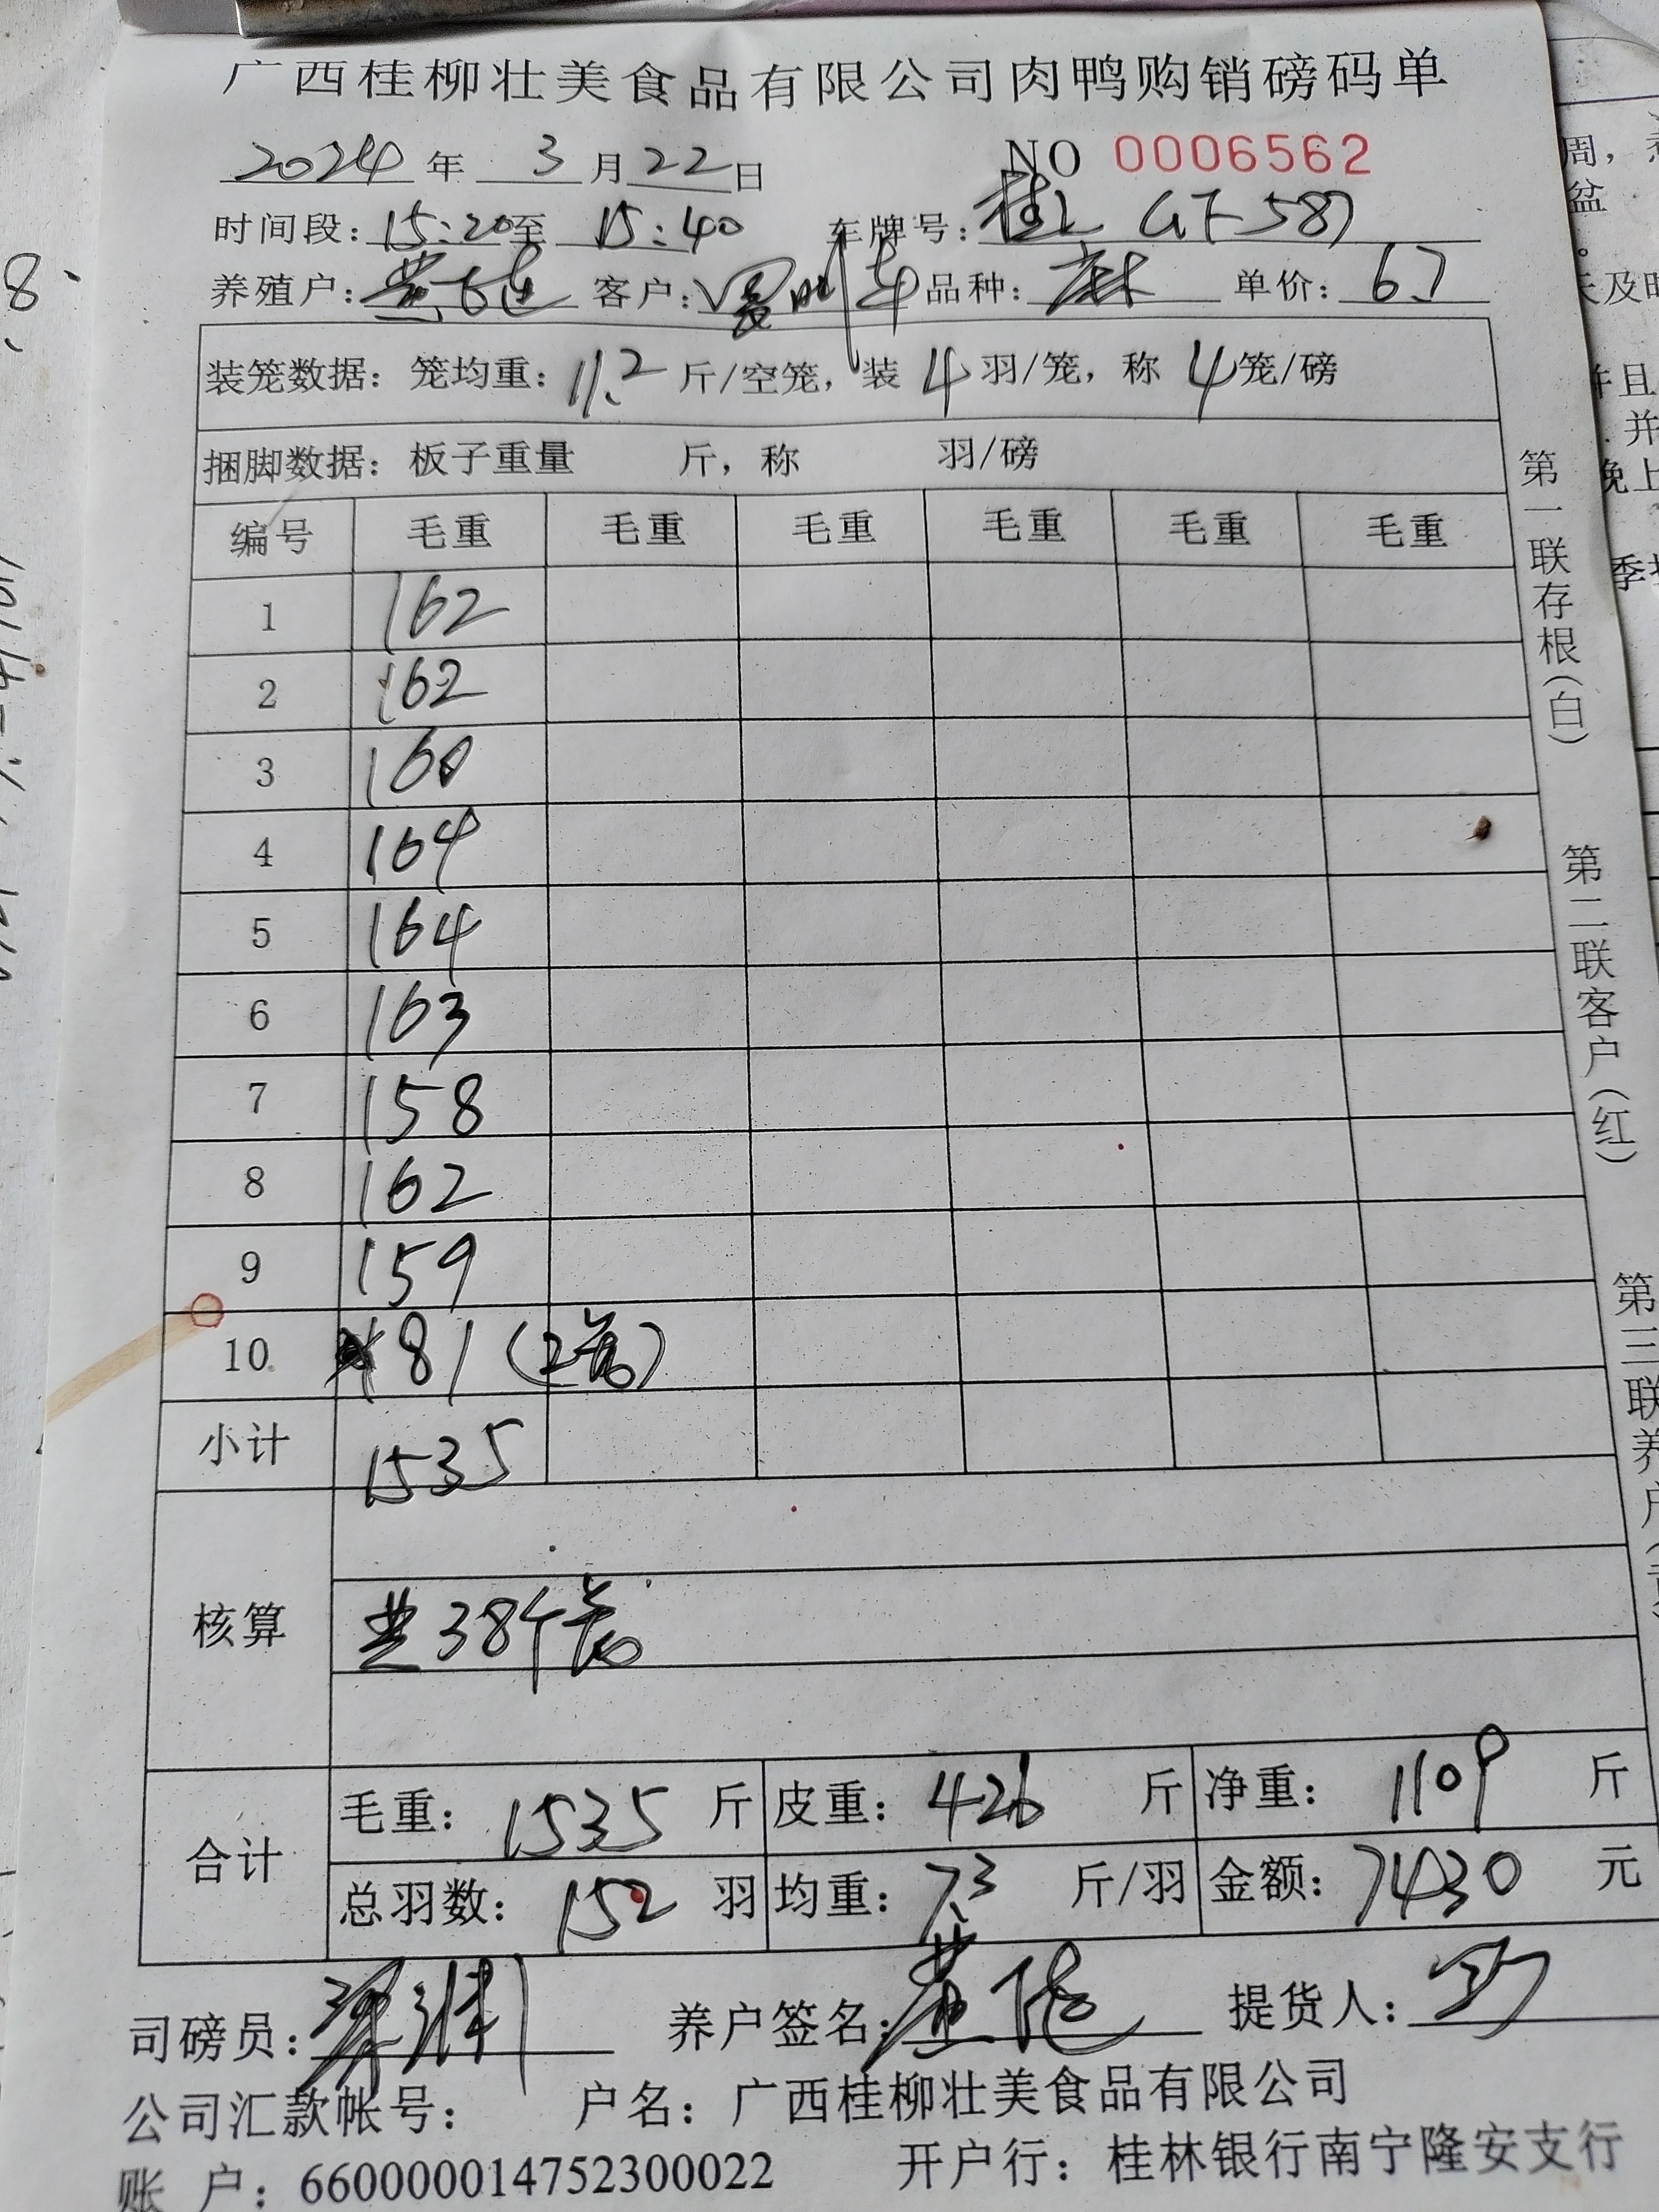 广西桂柳壮美食品有限公司肉鸭购销磅码单
2024年 3月22日 NO 0006562
时间段:15:20至 15:40 车牌号:桂L GF587
养殖户:黄 客户: 品种:麻 单价:6.7
装笼数据:笼均重:11.2斤/空笼,装4羽/笼,称4笼/磅
捆脚数据:板子重量 斤,称 羽/磅
编号 毛重 毛重 毛重 毛重 毛重 毛重
1 162
2 162
3 160
4 164
5 164
6 163
7 158
8 162
9 159
10 81(2笼)
小计 1535
核算 共38个笼
合计 毛重:1535斤 皮重:426斤 净重:1109斤
总羽数:152羽 均重:7.3斤/羽 金额:7430元
司磅员: 养户签名:黄 提货人:
公司汇款帐号: 户名:广西桂柳壮美食品有限公司
账 户:660000014752300022 开户行:桂林银行南宁隆安支行
第一联存根(白)
第二联客户(红)
第三联养户